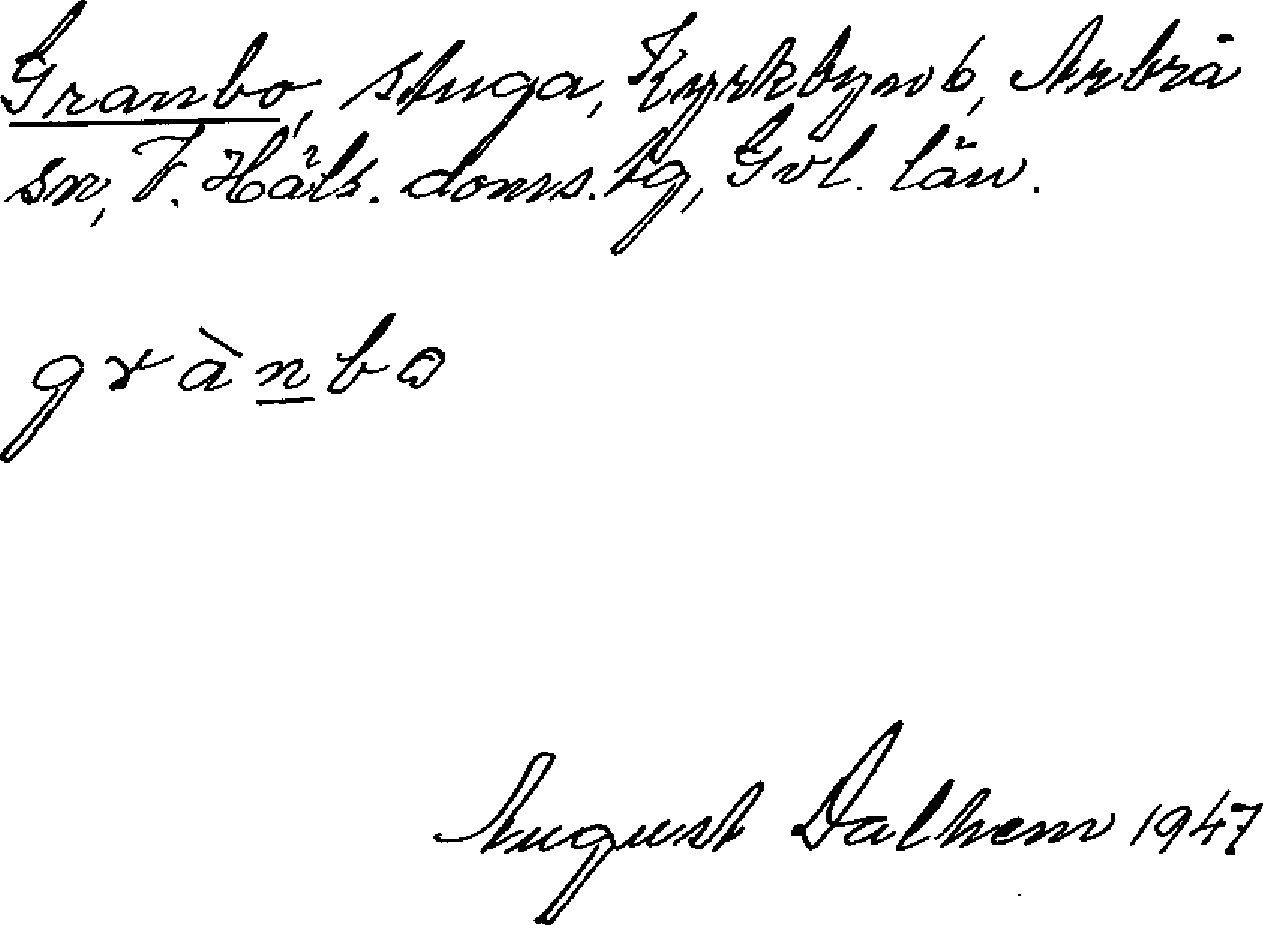 Granbo, stuga, Kyrkbyn 6, Arbrå
sn, V. Häls. doms.tg, Gvl. län.
grànbo
August Dalhem 1947